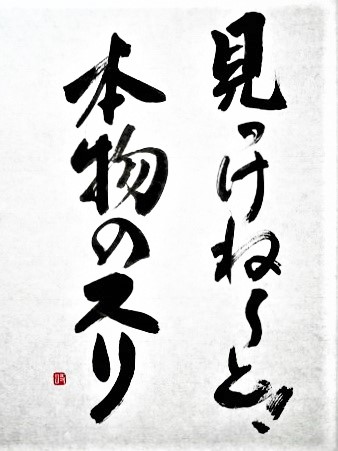 見っけねーど
本物のスリ